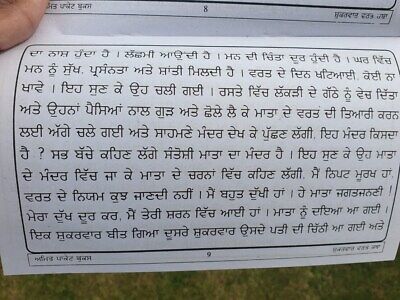 ਅਮਿਤ ਪਾਕੇਟ ਬੁਕਸ 8 ਸ਼ੁਕਰਵਾਰ ਵਰਤ ਕਥਾ
ਦਾ ਨਾਸ਼ ਹੁੰਦਾ ਹੈ । ਲੱਛਮੀ ਆਉਂਦੀ ਹੈ । ਮਨ ਦੀ ਚਿੰਤਾ ਦੂਰ ਹੁੰਦੀ ਹੈ । ਘਰ ਵਿੱਚ
ਮਨ ਨੂੰ ਸੁੱਖ, ਪ੍ਰਸੰਨਤਾ ਅਤੇ ਸ਼ਾਂਤੀ ਮਿਲਦੀ ਹੈ । ਵਰਤ ਦੇ ਦਿਨ ਖਟਿਆਈ, ਕੋਈ ਨਾ
ਖਾਵੇ । ਇਹ ਸੁਣ ਕੇ ਉਹ ਚਲੀ ਗਈ । ਰਸਤੇ ਵਿੱਚ ਲੱਕੜੀ ਦੇ ਗੱਠੇ ਨੂੰ ਵੇਚ ਦਿੱਤਾ
ਅਤੇ ਉਹਨਾਂ ਪੈਸਿਆਂ ਨਾਲ ਗੁੜ ਅਤੇ ਛੋਲੇ ਲੈ ਕੇ ਮਾਤਾ ਦੇ ਵਰਤ ਦੀ ਤਿਆਰੀ ਕਰਨ
ਲਈ ਅੱਗੇ ਚਲੇ ਗਈ ਅਤੇ ਸਾਹਮਣੇ ਮੰਦਰ ਦੇਖ ਕੇ ਪੁੱਛਣ ਲੱਗੀ, ਇਹ ਮੰਦਰ ਕਿਸਦਾ
ਹੈ ? ਸਭ ਬੱਚੇ ਕਹਿਣ ਲੱਗੇ ਸੰਤੋਸ਼ੀ ਮਾਤਾ ਦਾ ਮੰਦਰ ਹੈ । ਇਹ ਸੁਣ ਕੇ ਉਹ ਮਾਤਾ
ਦੇ ਮੰਦਰ ਵਿੱਚ ਜਾ ਕੇ ਮਾਤਾ ਦੇ ਚਰਨਾਂ ਵਿੱਚ ਕਹਿਣ ਲੱਗੀ, ਮੈਂ ਨਿਪਟ ਮੂਰਖ ਹਾਂ,
ਵਰਤ ਦੇ ਨਿਯਮ ਕੁਝ ਜਾਣਦੀ ਨਹੀਂ । ਮੈਂ ਬਹੁਤ ਦੁੱਖੀ ਹਾਂ । ਹੇ ਮਾਤਾ ਜਗਤਜਨਣੀ !
ਮੇਰਾ ਦੁੱਖ ਦੂਰ ਕਰ, ਮੈਂ ਤੇਰੀ ਸ਼ਰਨ ਵਿੱਚ ਆਈ ਹਾਂ । ਮਾਤਾ ਨੂੰ ਦਇਆ ਆ ਗਈ ।
ਇਕ ਸ਼ੁਕਰਵਾਰ ਬੀਤ ਗਿਆ ਦੂਸਰੇ ਸ਼ੁਕਰਵਾਰ ਉਸਦੇ ਪਤੀ ਦੀ ਚਿੱਠੀ ਆ ਗਈ ਅਤੇ
ਅਮਿਤ ਪਾਕੇਟ ਬੁਕਸ 9 ਸ਼ੁਕਰਵਾਰ ਵਰਤ ਕਥਾ